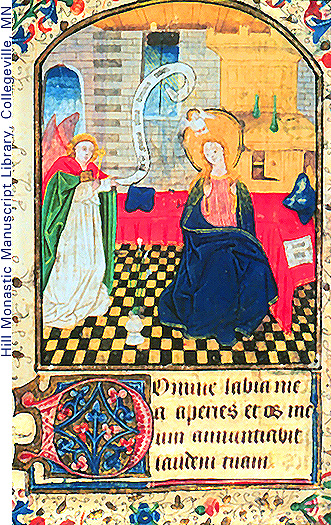 Hill Monastic Manuscript Library, Collegeville, MN
Domine labia me
a aperies et os me
um annuntiabit
laudem tuam